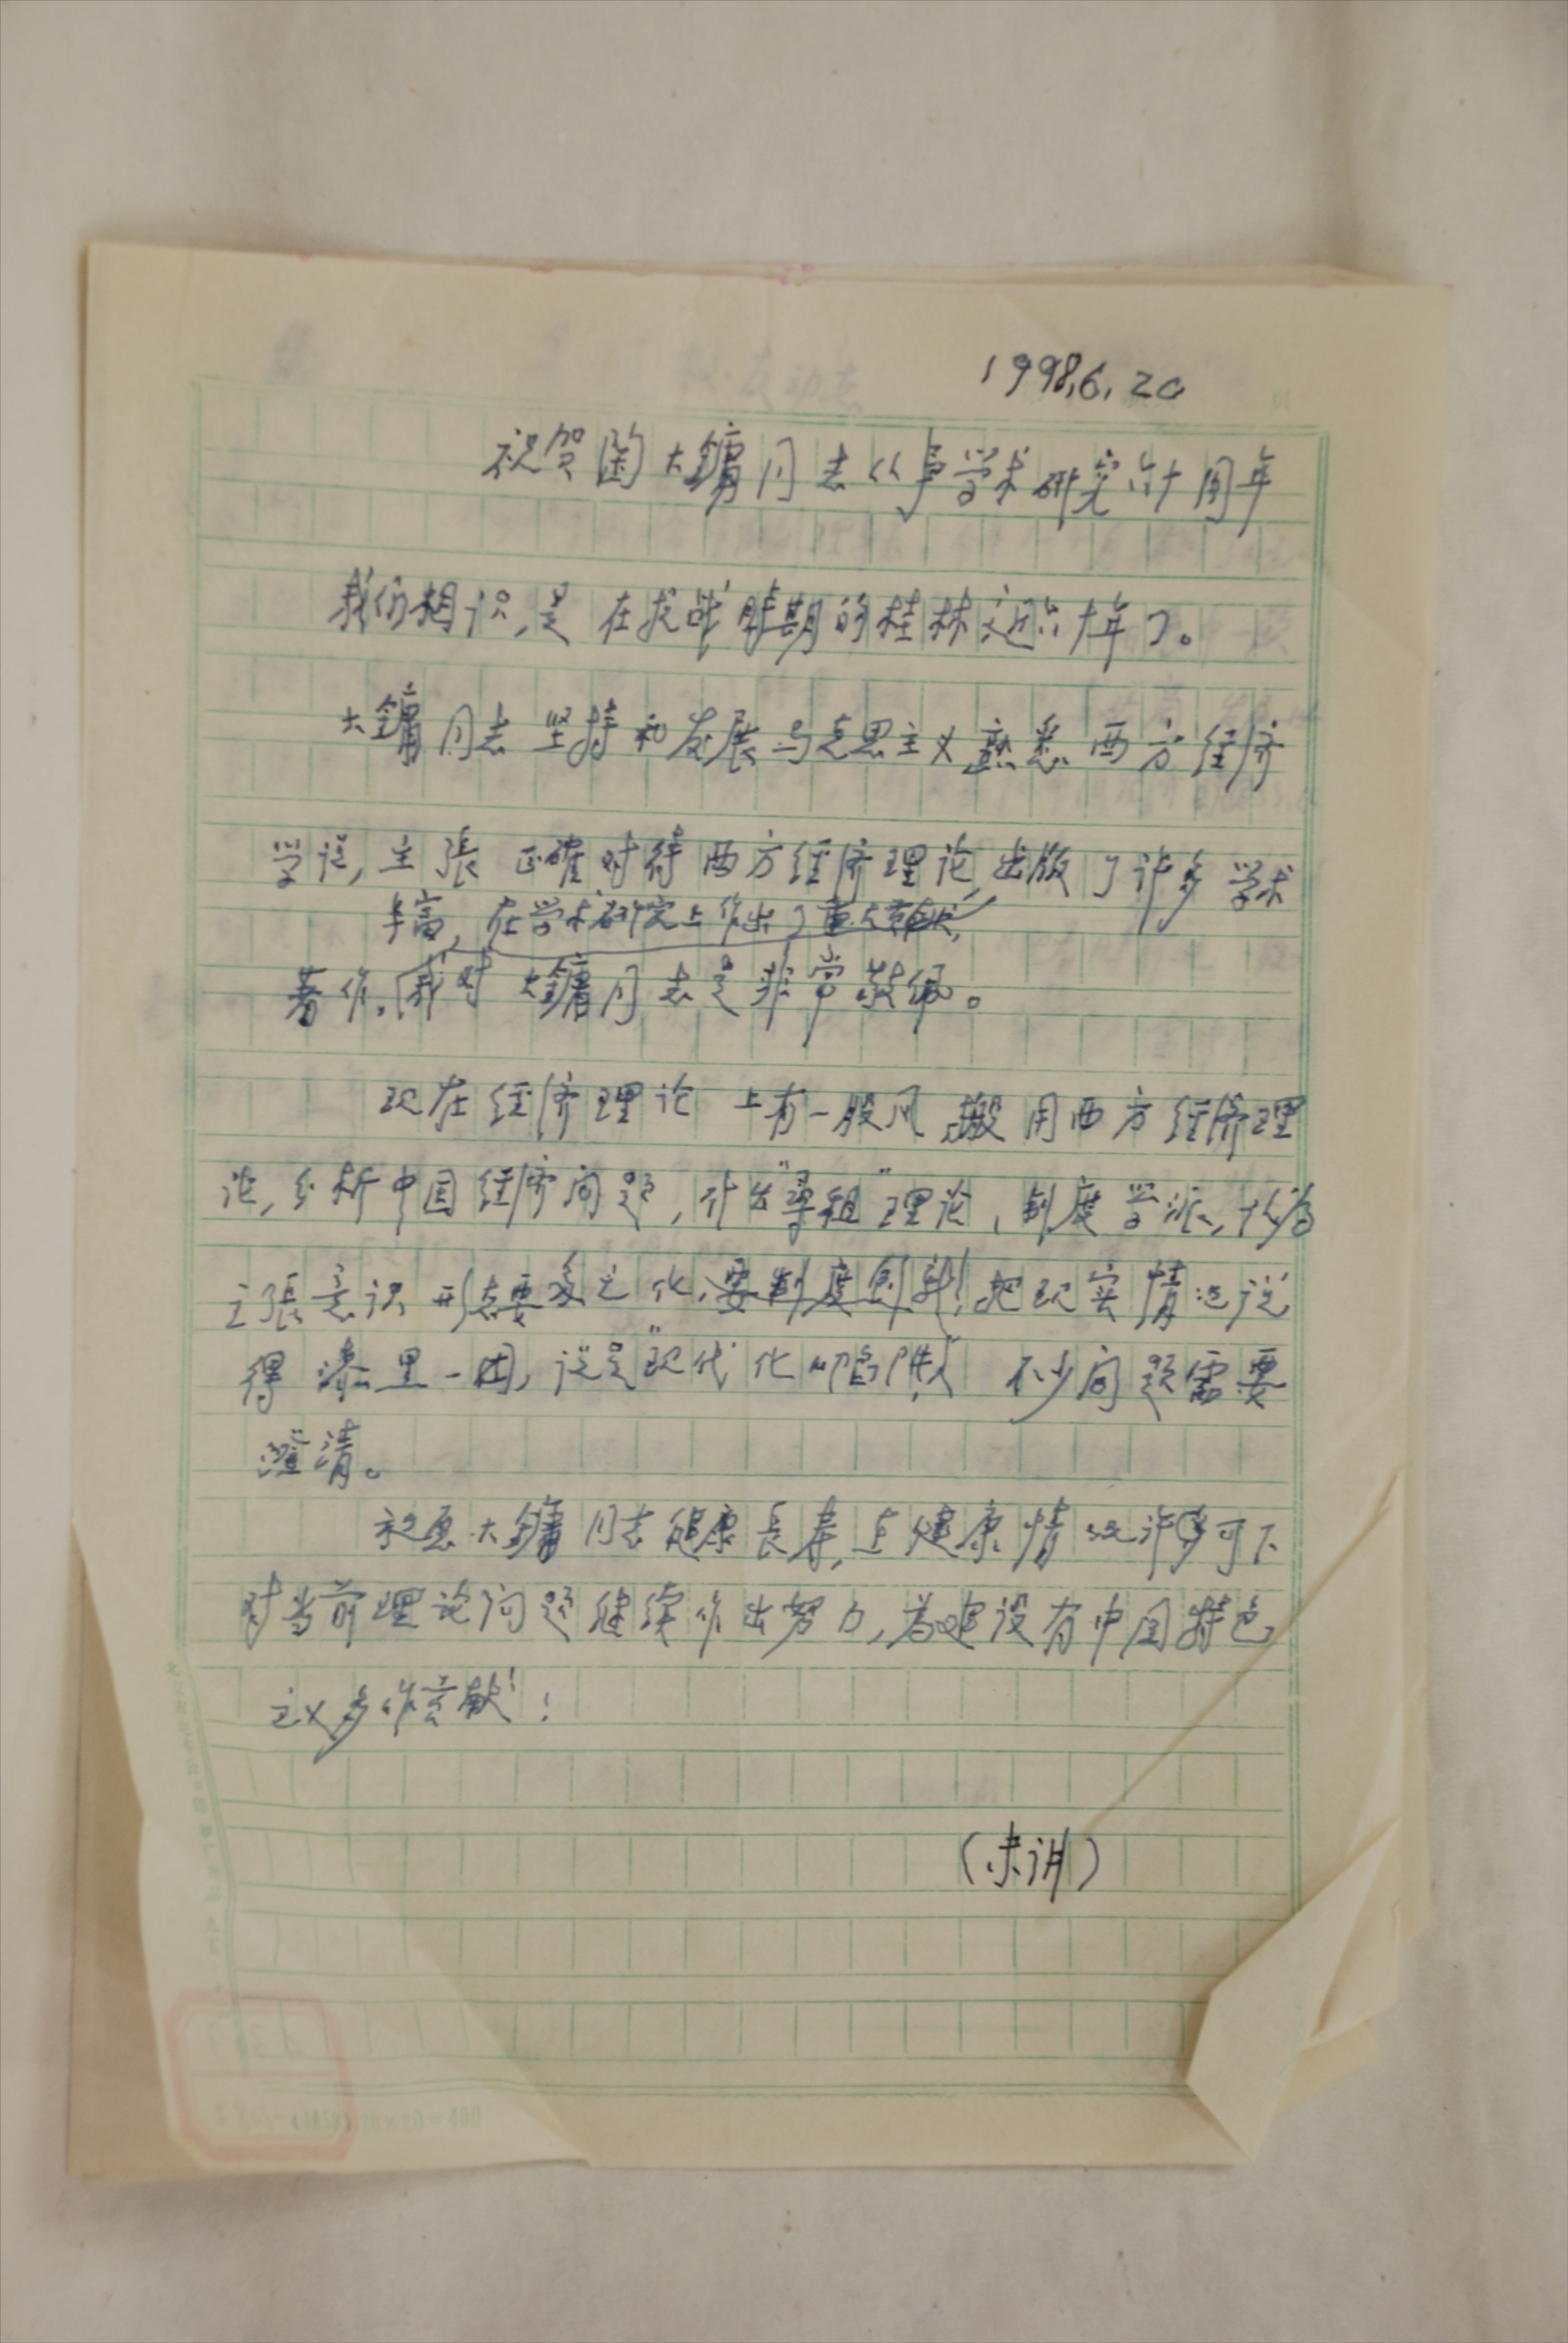 1998.6.20
祝贺陶大镛同志从事学术研究六十周年
我们相识,是在抗战时期的桂林,近六十年了。
大镛同志坚持和发展马克思主义熟悉西方经济
学说,主張正確对待西方经济理论,出版了许多学术
丰富,在学术研究上作出了重大贡献,
著作。我对大镛同志是非常敬佩。
现在经济理论上有一股风,搬用西方经济理
论,分析中国经济问题,什么"寻租"理论、制度学派,认为
主張意识形态要多元化,要制度创新!把现实情况说
得漆黑一团,说是"现代化的陷阱"不少问题需要
澄清。
祝愿大镛同志健康長寿,在健康情况许可下
对当前理论问题继续作出努力,为建设有中国特色
主义多作贡献!
(未讲)
20×20=400